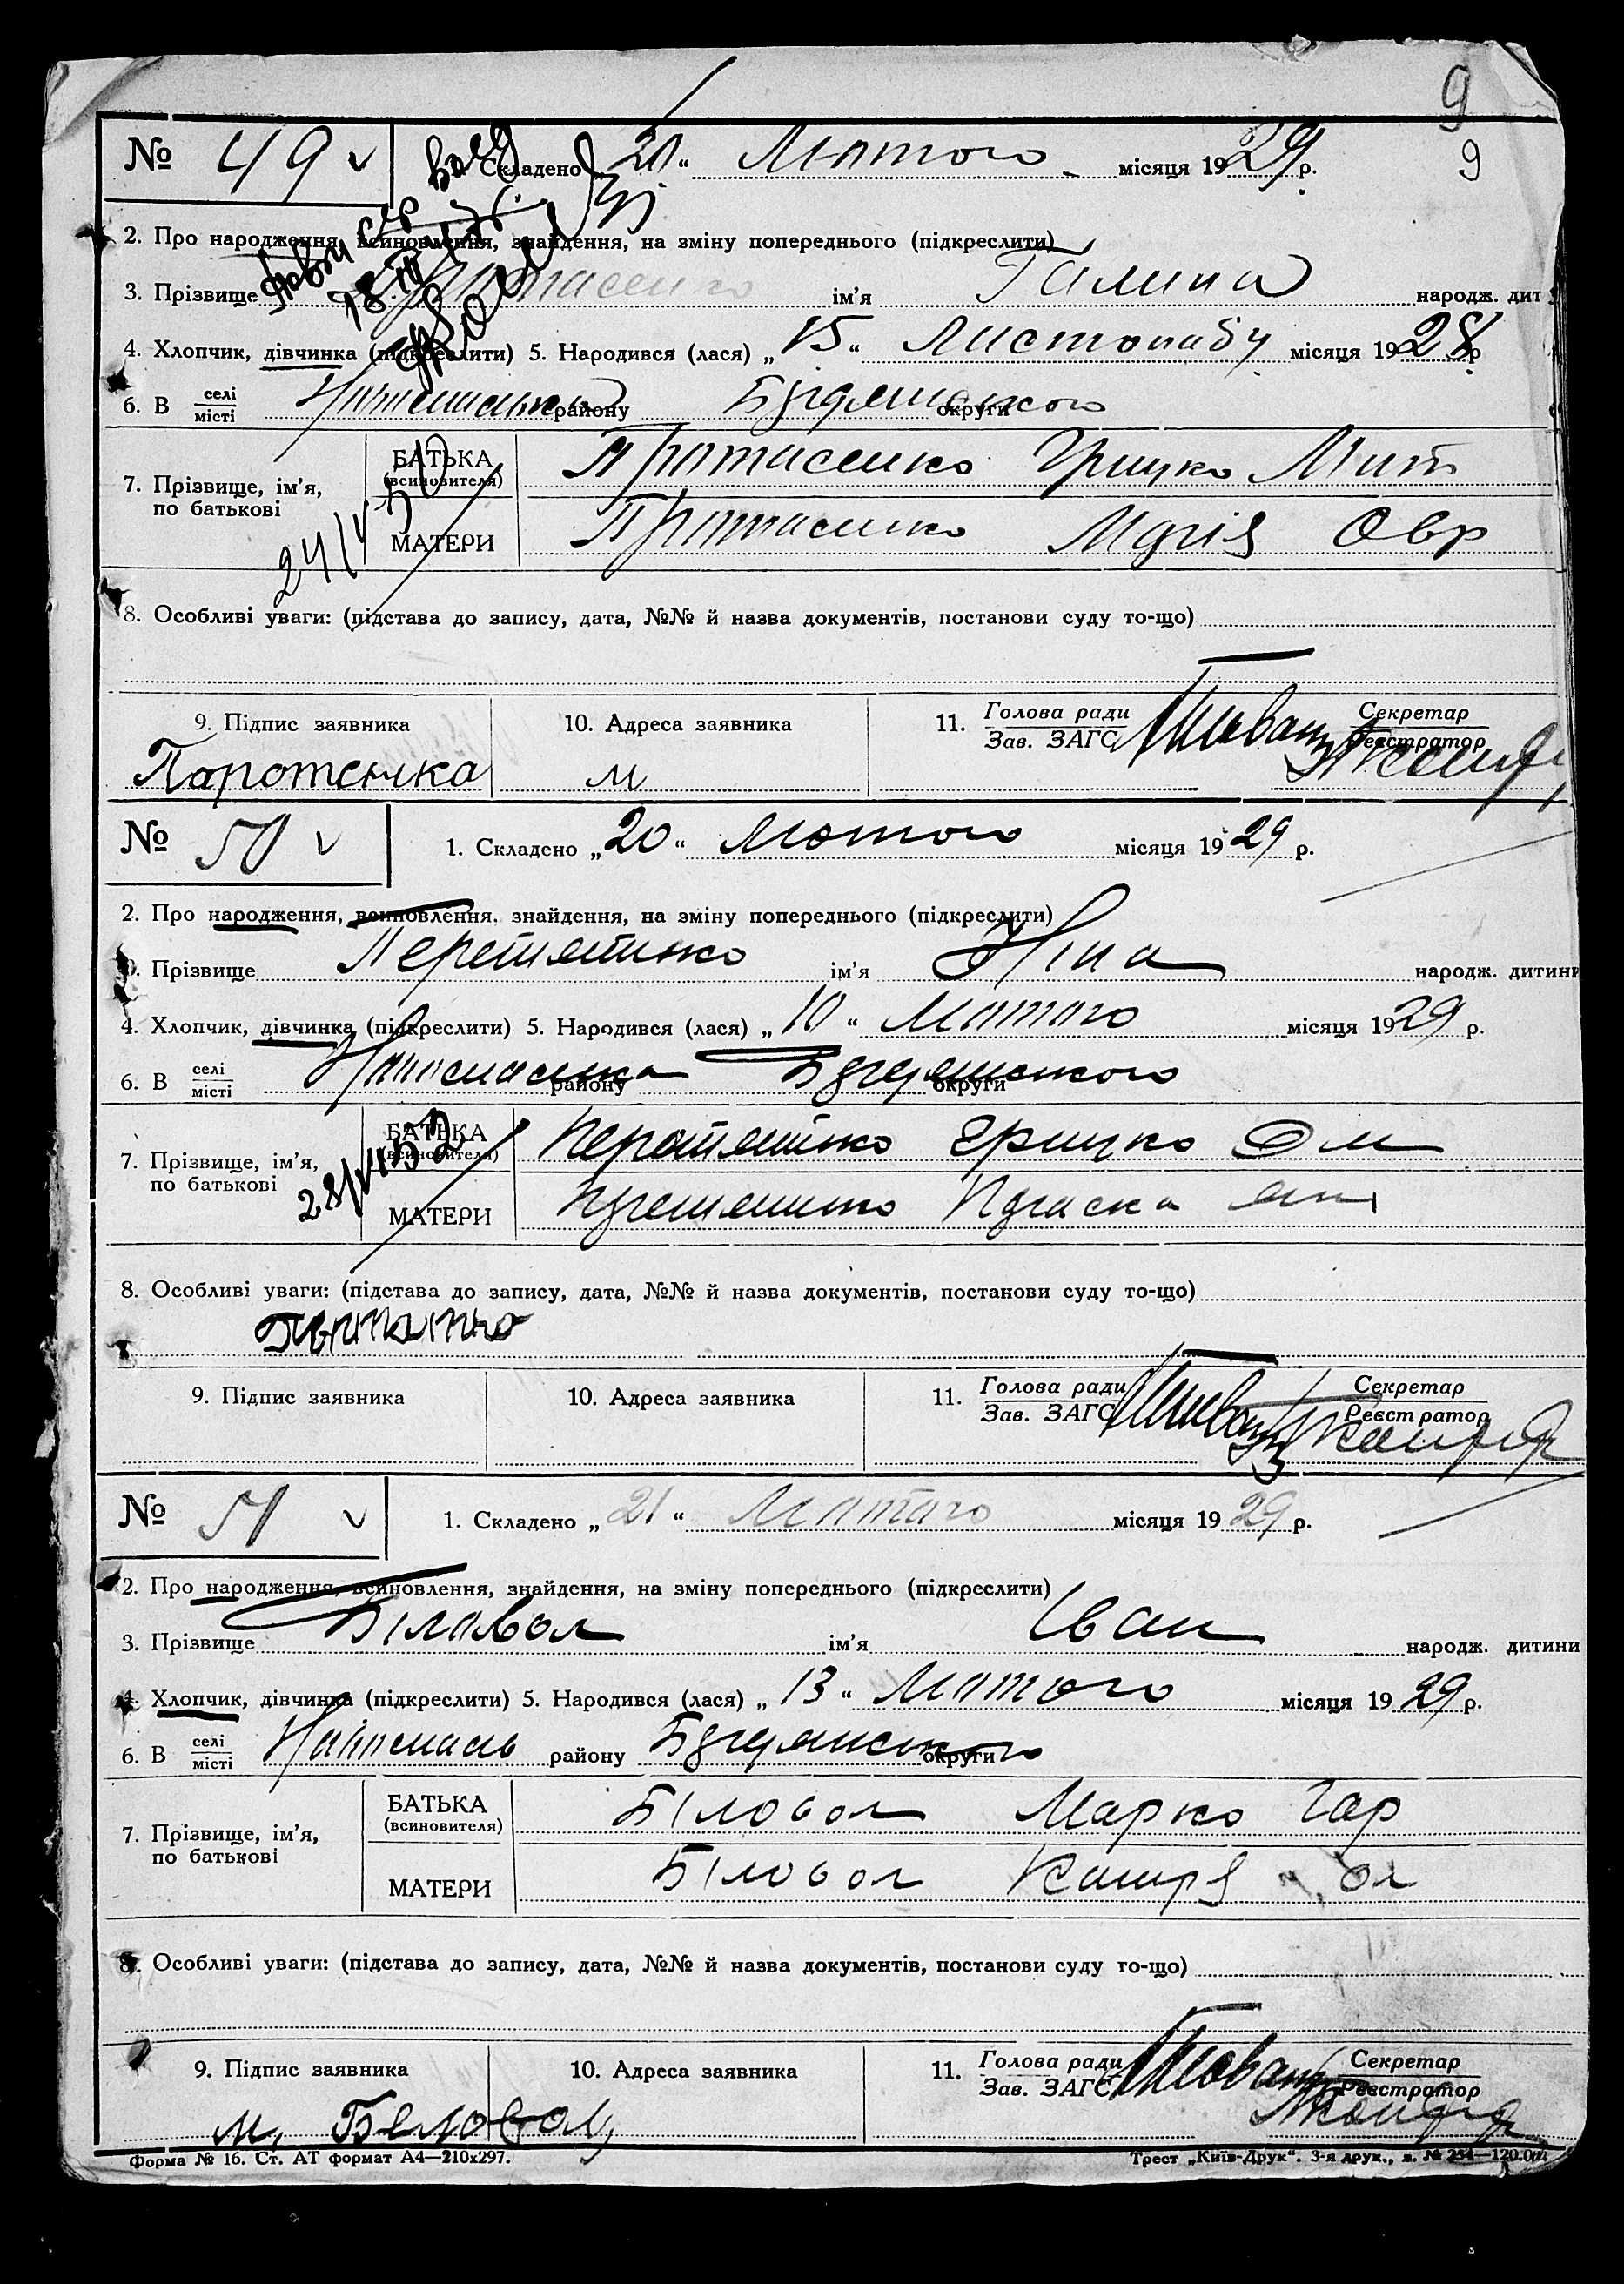 9
№ 49 v 1. Складено „20“ Лютого місяця 1929 р. 9
2. Про народження, всиновлення, знайдення, на зміну попереднього (підкреслити)
3. Прізвище Протасенко ім'я Галина народж. дит
4. Хлопчик, дівчинка (підкреслити) 5. Народився (лася) „15“ Листопаду місяця 1928 р
6. В селі/місті району округи
7. Прізвище, ім'я, по батькові
БАТЬКА (всиновителя) Протасенко Грицко Мит
МАТЕРИ Протасенко Марія Овр
8. Особливі уваги: (підстава до запису, дата, №№ й назва документів, постанови суду то-що)
9. Підпис заявника 10. Адреса заявника 11. Голова ради/Зав. ЗАГС Секретар/Реєстратор
№ 50 v 1. Складено „20“ Лютого місяця 1929 р.
2. Про народження, всиновлення, знайдення, на зміну попереднього (підкреслити)
3. Прізвище Перетятько ім'я Ніна народж. дитини
4. Хлопчик, дівчинка (підкреслити) 5. Народився (лася) „10“ Лютого місяця 1929 р.
6. В селі/місті району округи
7. Прізвище, ім'я, по батькові
БАТЬКА (всиновителя) Перетятько Грицко Ом
МАТЕРИ Перетятько
8. Особливі уваги: (підстава до запису, дата, №№ й назва документів, постанови суду то-що)
9. Підпис заявника 10. Адреса заявника 11. Голова ради/Зав. ЗАГС Секретар/Реєстратор
№ 51 v 1. Складено „21“ Лютого місяця 1929 р.
2. Про народження, всиновлення, знайдення, на зміну попереднього (підкреслити)
3. Прізвище Біловол ім'я Іван народж. дитини
4. Хлопчик, дівчинка (підкреслити) 5. Народився (лася) „13“ Лютого місяця 1929 р.
6. В селі/місті району округи
7. Прізвище, ім'я, по батькові
БАТЬКА (всиновителя) Біловол Марко Гар
МАТЕРИ Біловол
8. Особливі уваги: (підстава до запису, дата, №№ й назва документів, постанови суду то-що)
9. Підпис заявника 10. Адреса заявника 11. Голова ради/Зав. ЗАГС Секретар/Реєстратор
м. Беловол
Форма № 16. Ст. АТ формат А4—210х297. Трест „Київ-Друк“. 3-я друк., з. № 254—120.000